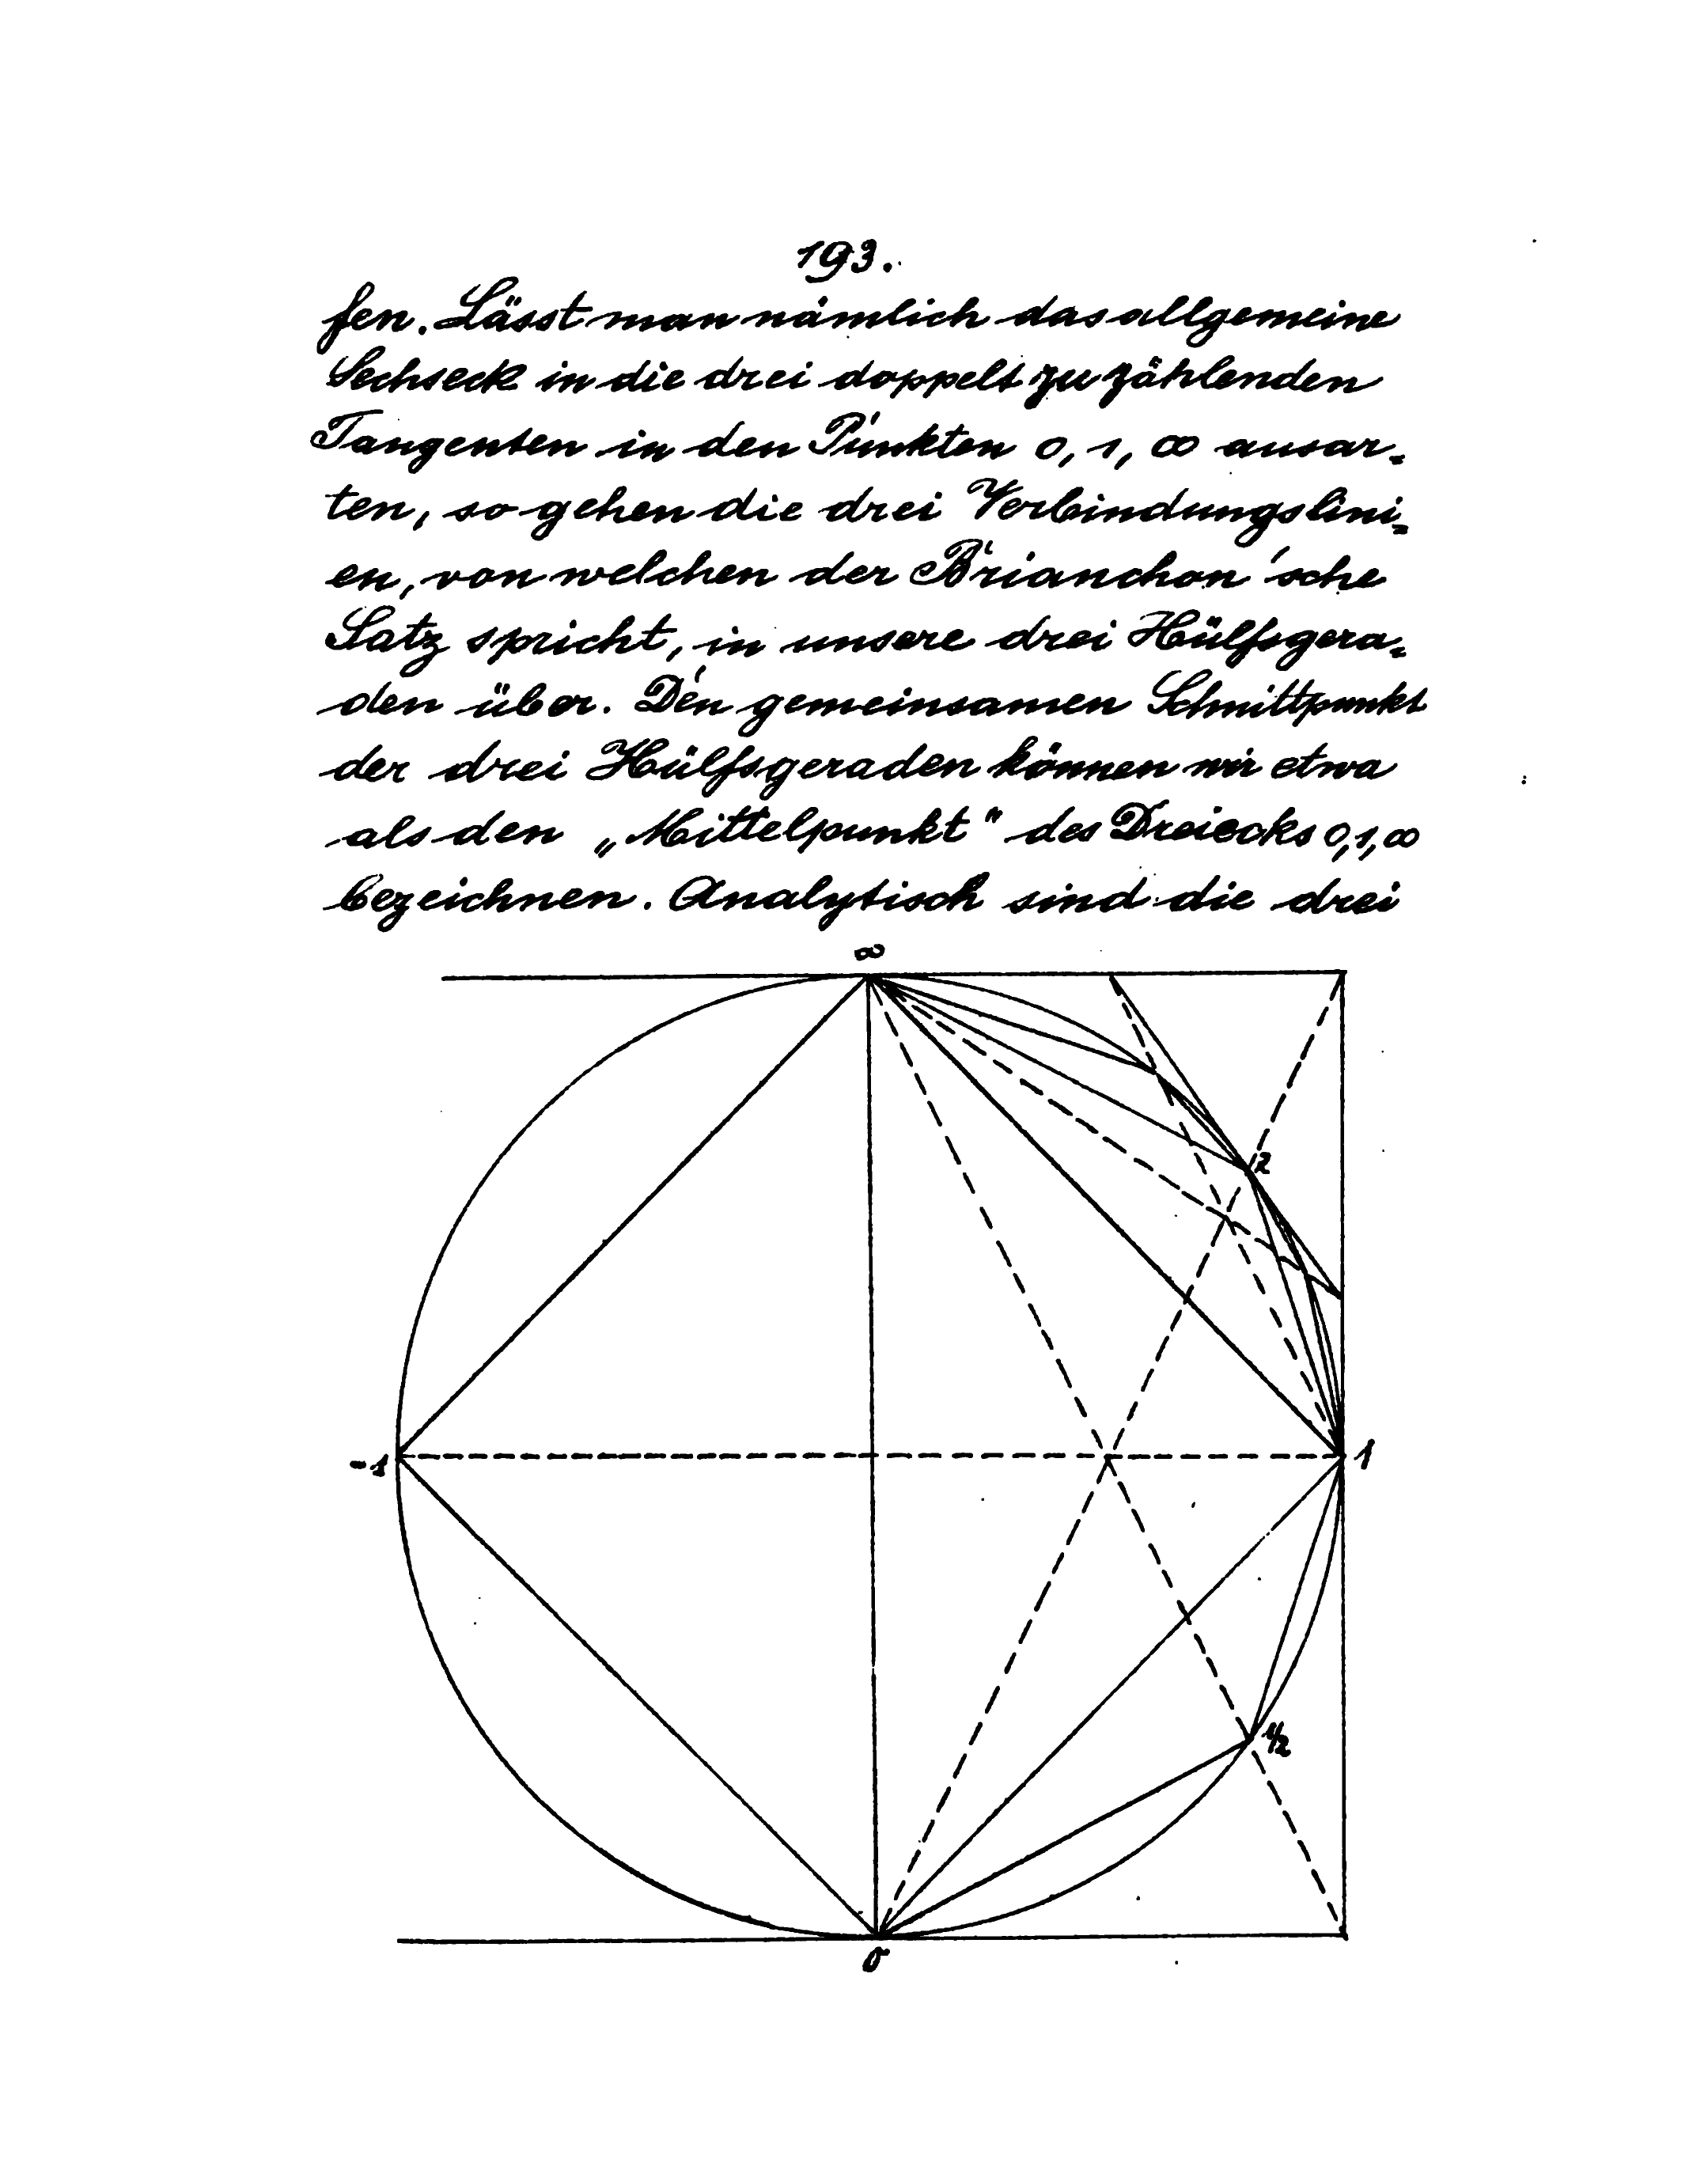 193.
fen. Lässt man nämlich das allgemeine
Sechseck in die drei doppelt zu zählenden
Tangenten in den Punkten 0, 1, ∞ ausar-
ten, so gehen die drei Verbindungslini-
en, von welchen der Brianchon'sche
Satz spricht, in unsere drei Hülfsgera-
den über. Den gemeinsamen Schnittpunkt
der drei Hülfsgeraden können wir etwa
als den „Mittelpunkt" des Dreiecks 0,1,∞
bezeichnen. Analytisch sind die drei
∞
2
-1
1
1/2
0